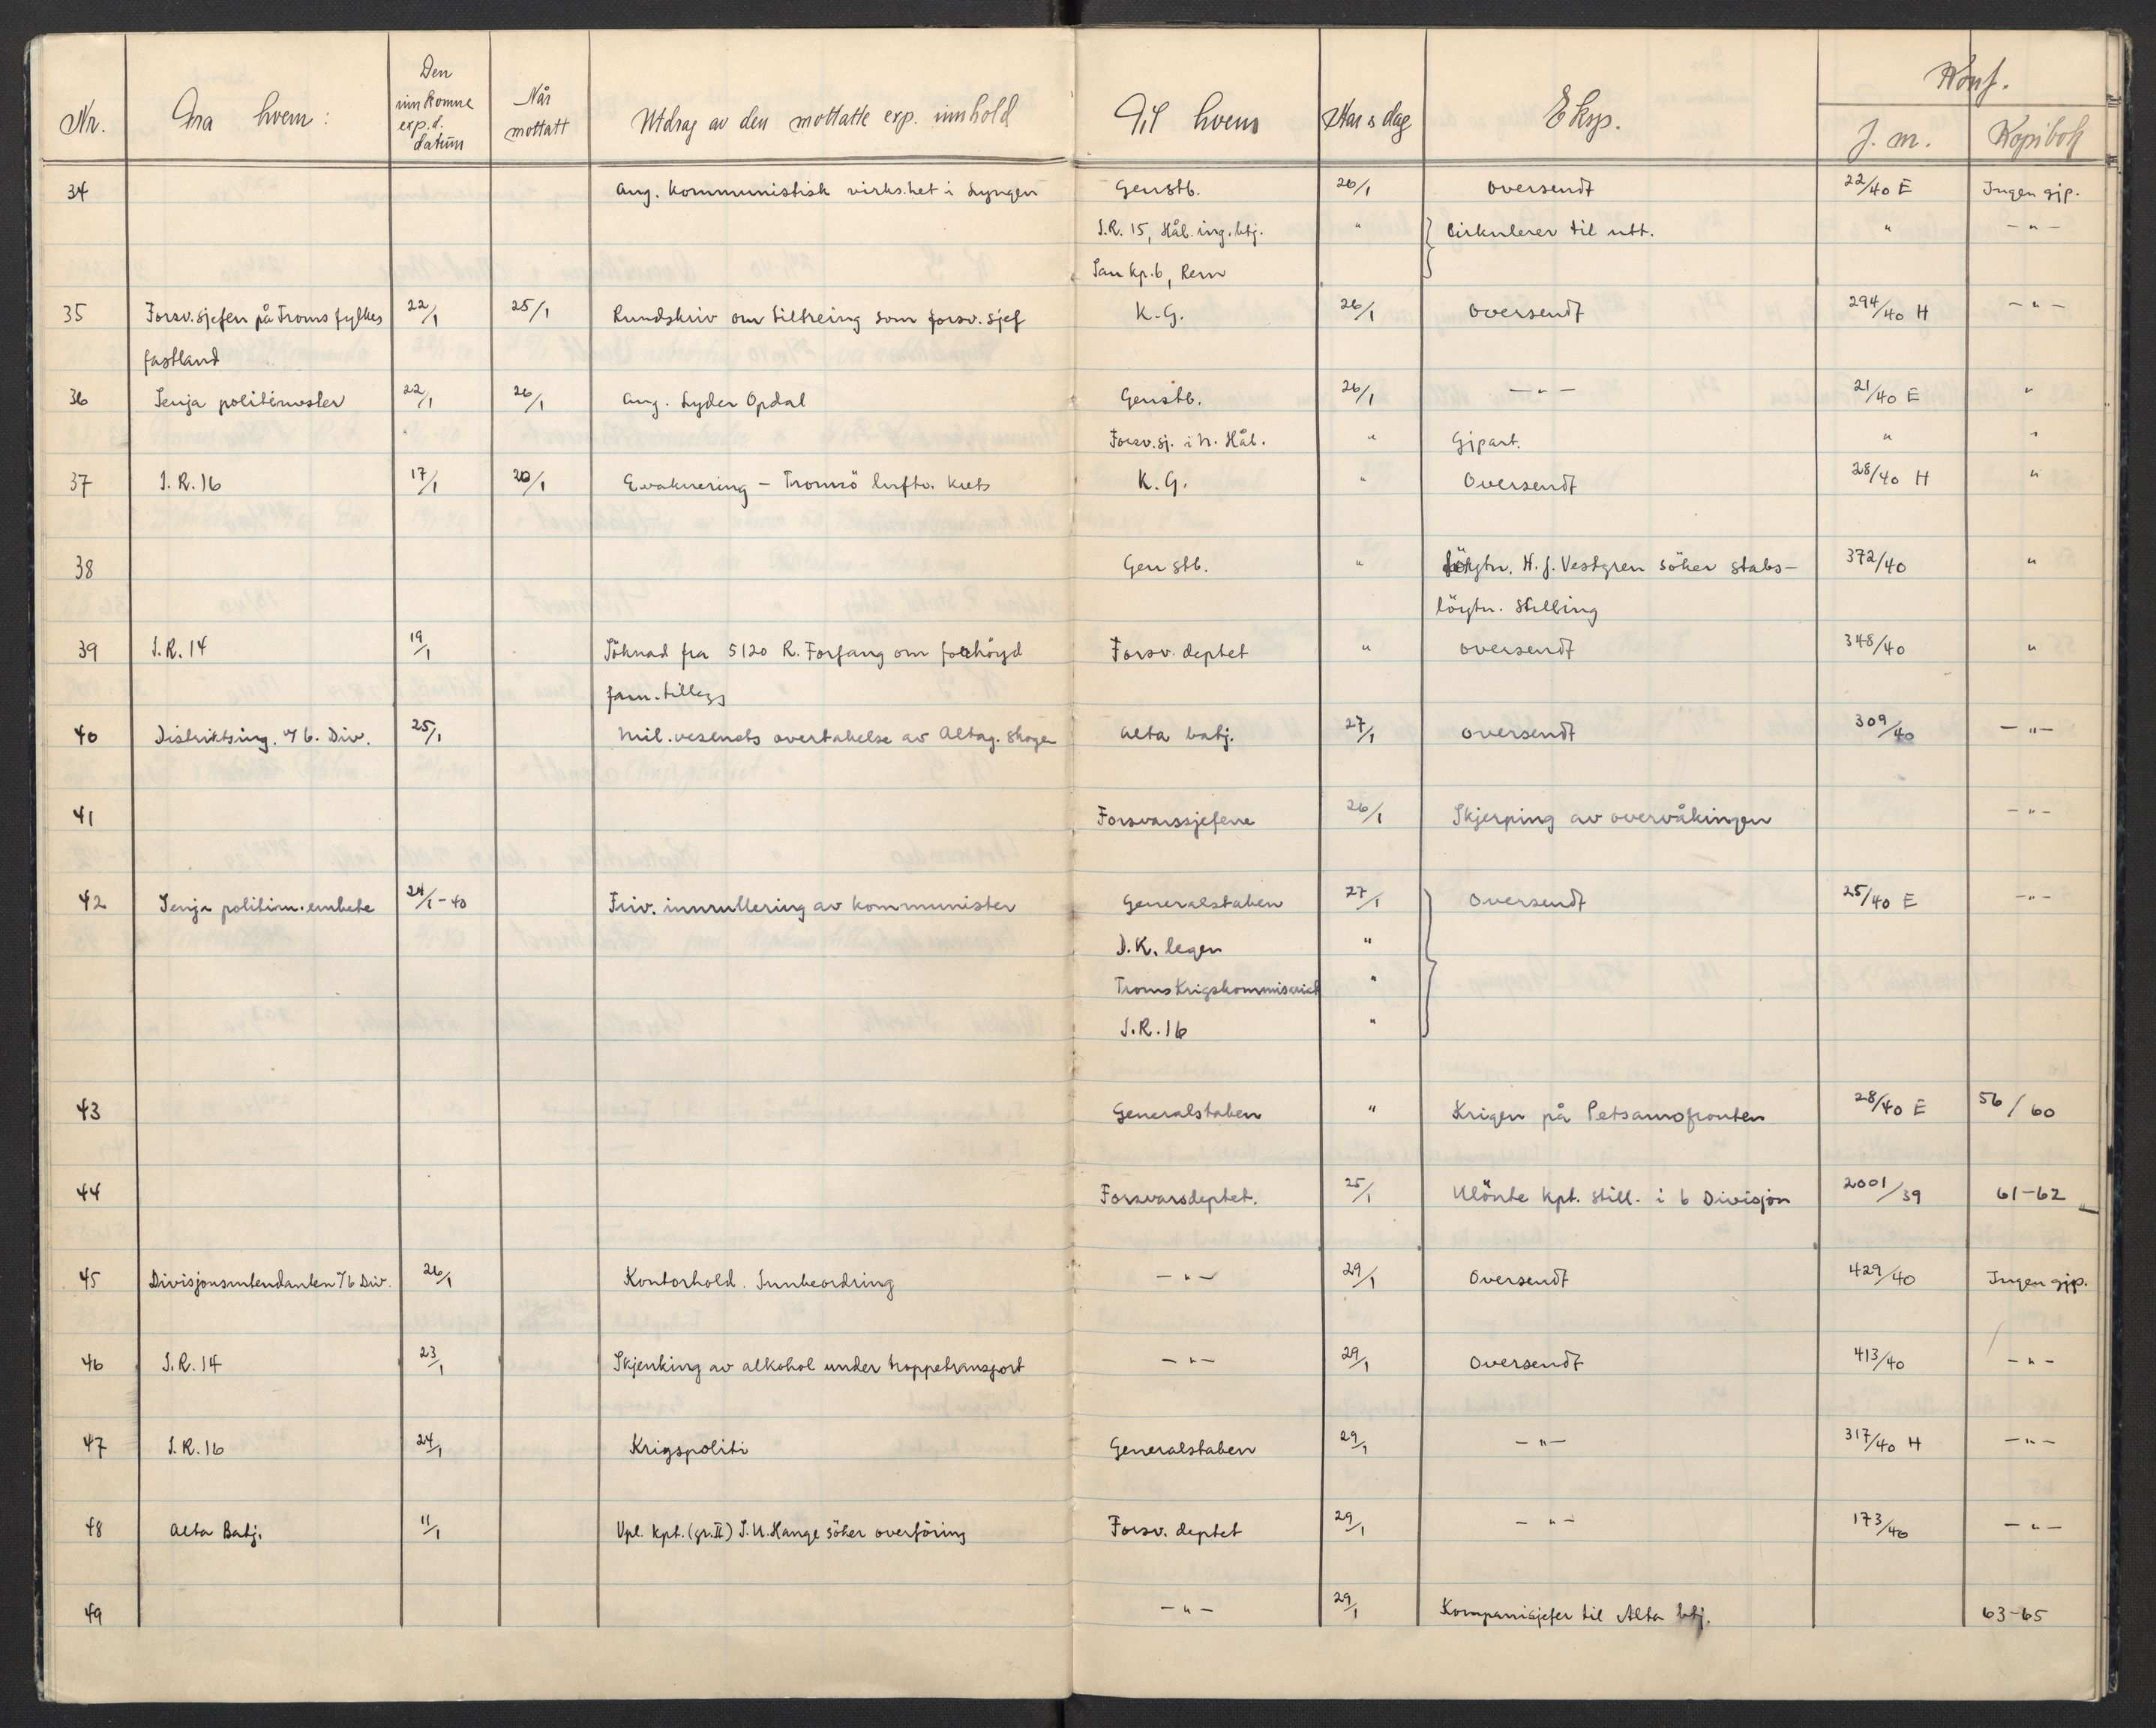 Nr. Fra hvem: Den innkomne exp.d. datum Når mottatt Utdrag av den mottatte exp. innhold Til hvem Aar & dag Eksp. Konf. J.m. Kopibok
34 Ang. kommunistisk virks.het i Lyngen Genstb. 26/1 Oversendt 22/40 E Ingen gjp.
I.R. 15, Hål. ing. btj. " Cirkulerer til utt. " -"-
San kp. 6, Rem
35 Forsv.sjefen på Troms fylkes 22/1 25/1 Rundskriv om tiltreing som forsv.sjef K.G. 26/1 Oversendt 294/40 H -"-
fastland
36 Senja politimester 22/1 26/1 Ang. Lyder Opdal Genstb. 26/1 -"- 21/40 E "
Forsv.sj. i N. Hål. " Gjpart. " "
37 I.R. 16 17/1 20/1 Evakuering - Tromsö luftv. krets K.G. " Oversendt 28/40 H "
38 Gen stb. " löytn. H.J. Vestgren söker stabs-
löytn. stilling 372/40 "
39 I.R. 14 19/1 Söknad fra 5120 R. Forfang om forhöyd Forsv. deptet " oversendt 348/40 "
fam. tillegg
40 Distriktsing. v/6. Div. 25/1 Mil.vesenets overtakelse av Altag. skogen Alta batj. 27/1 oversendt 309/40 -"-
41 Forsvarssjefene 26/1 Skjerping av overvåkingen -"-
42 Senja politim. embete 24/1-40 Friv. innrullering av kommunister Generalstaben 27/1 Oversendt 25/40 E -"-
D.K. legen "
Troms Krigskommisariat "
I.R. 16 "
43 Generalstaben " Krigen på Petsamofronten 28/40 E 56/60
44 Forsvarsdeptet. 25/1 Ulönte kpt. still. i 6 Divisjon 2001/39 61-62
45 Divisjonsintendanten v/6 Div. 26/1 Kontorhold. Innbeordring -"- 29/1 Oversendt 429/40 Ingen gjp.
46 I.R. 14 23/1 Skjenking av alkohol under troppetransport -"- 29/1 Oversendt 413/40 -"-
47 I.R. 16 24/1 Krigspoliti Generalstaben 29/1 -"- 317/40 H -"-
48 Alta Batj. 11/1 Vpl. kpt. (gr. II) J.U. Hange söker overföring Forsv. deptet 29/1 -"- 173/40 -"-
49 -"- 29/1 Kompanisjefer til Alta btj. 63-65